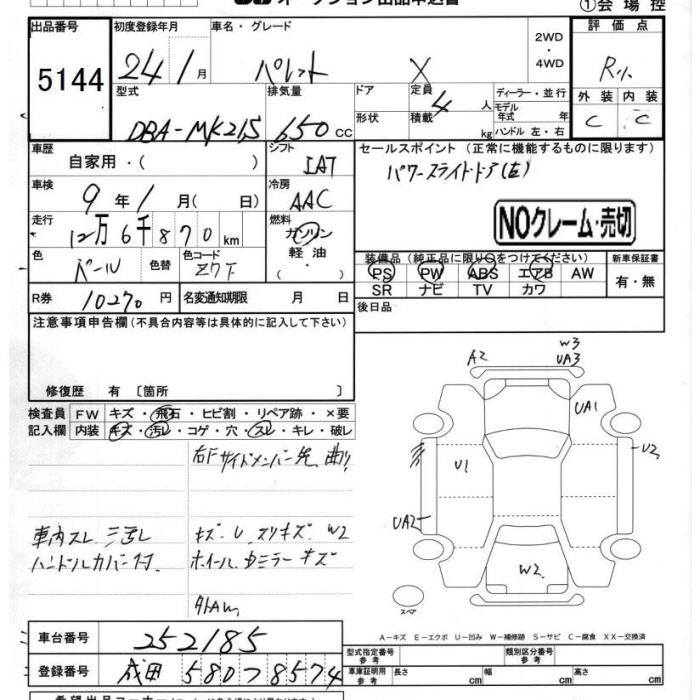 オークション出品申込書
①会 場 控
出品番号 初度登録年月 車名・グレード 2WD・4WD 評 価 点
5144 24年 1月 パレット X R
型式 排気量 ドア 定員 ディーラー・並行 外 装 内 装
形状 積載 4人 モデル年式 年 C C
DBA-MK21S 650cc kg ハンドル 左・右
車歴 自家用・( ) シフト IAT セールスポイント (正常に機能するものに限ります)
パワースライドドア(左)
車検 9年 1月( 日) 冷房 AAC
NOクレーム・売切
走行 12万6千870km 燃料 ガソリン 軽 油 ( ・ )
装備品 (純正品に限り○をつけてください) 新車保証書
色 パール 色替 色コード Z7T
PS PW ABS エアB AW 有・無
SR ナビ TV カワ
R券 10270円 名変通知期限 月 日 後日品
注意事項申告欄(不具合内容等は具体的に記入して下さい)
W3
A2 UA3
修復歴 有 〔箇所 〕
検査員 FW キズ・飛石・ヒビ割・リペア跡・×要
UA1
記入欄 内装 キズ・汚レ・コゲ・穴・スレ・キレ・破レ
右Fサイドメンバー先 曲り
U2
U1
UA2
車内スレ 汚レ キズ U スリキズ W2
ハンドルカバー付. ホイール、ドアミラー キズ
W2
スペア
A−キズ E−エクボ U−凹み W−補修跡 S−サビ C−腐食 XX−交換済
車台番号 252185
型式指定番号 参考 類別区分番号 参考
登録番号 成田 580つ8574
車庫証明用 参考 長さ cm 幅 cm 高さ cm